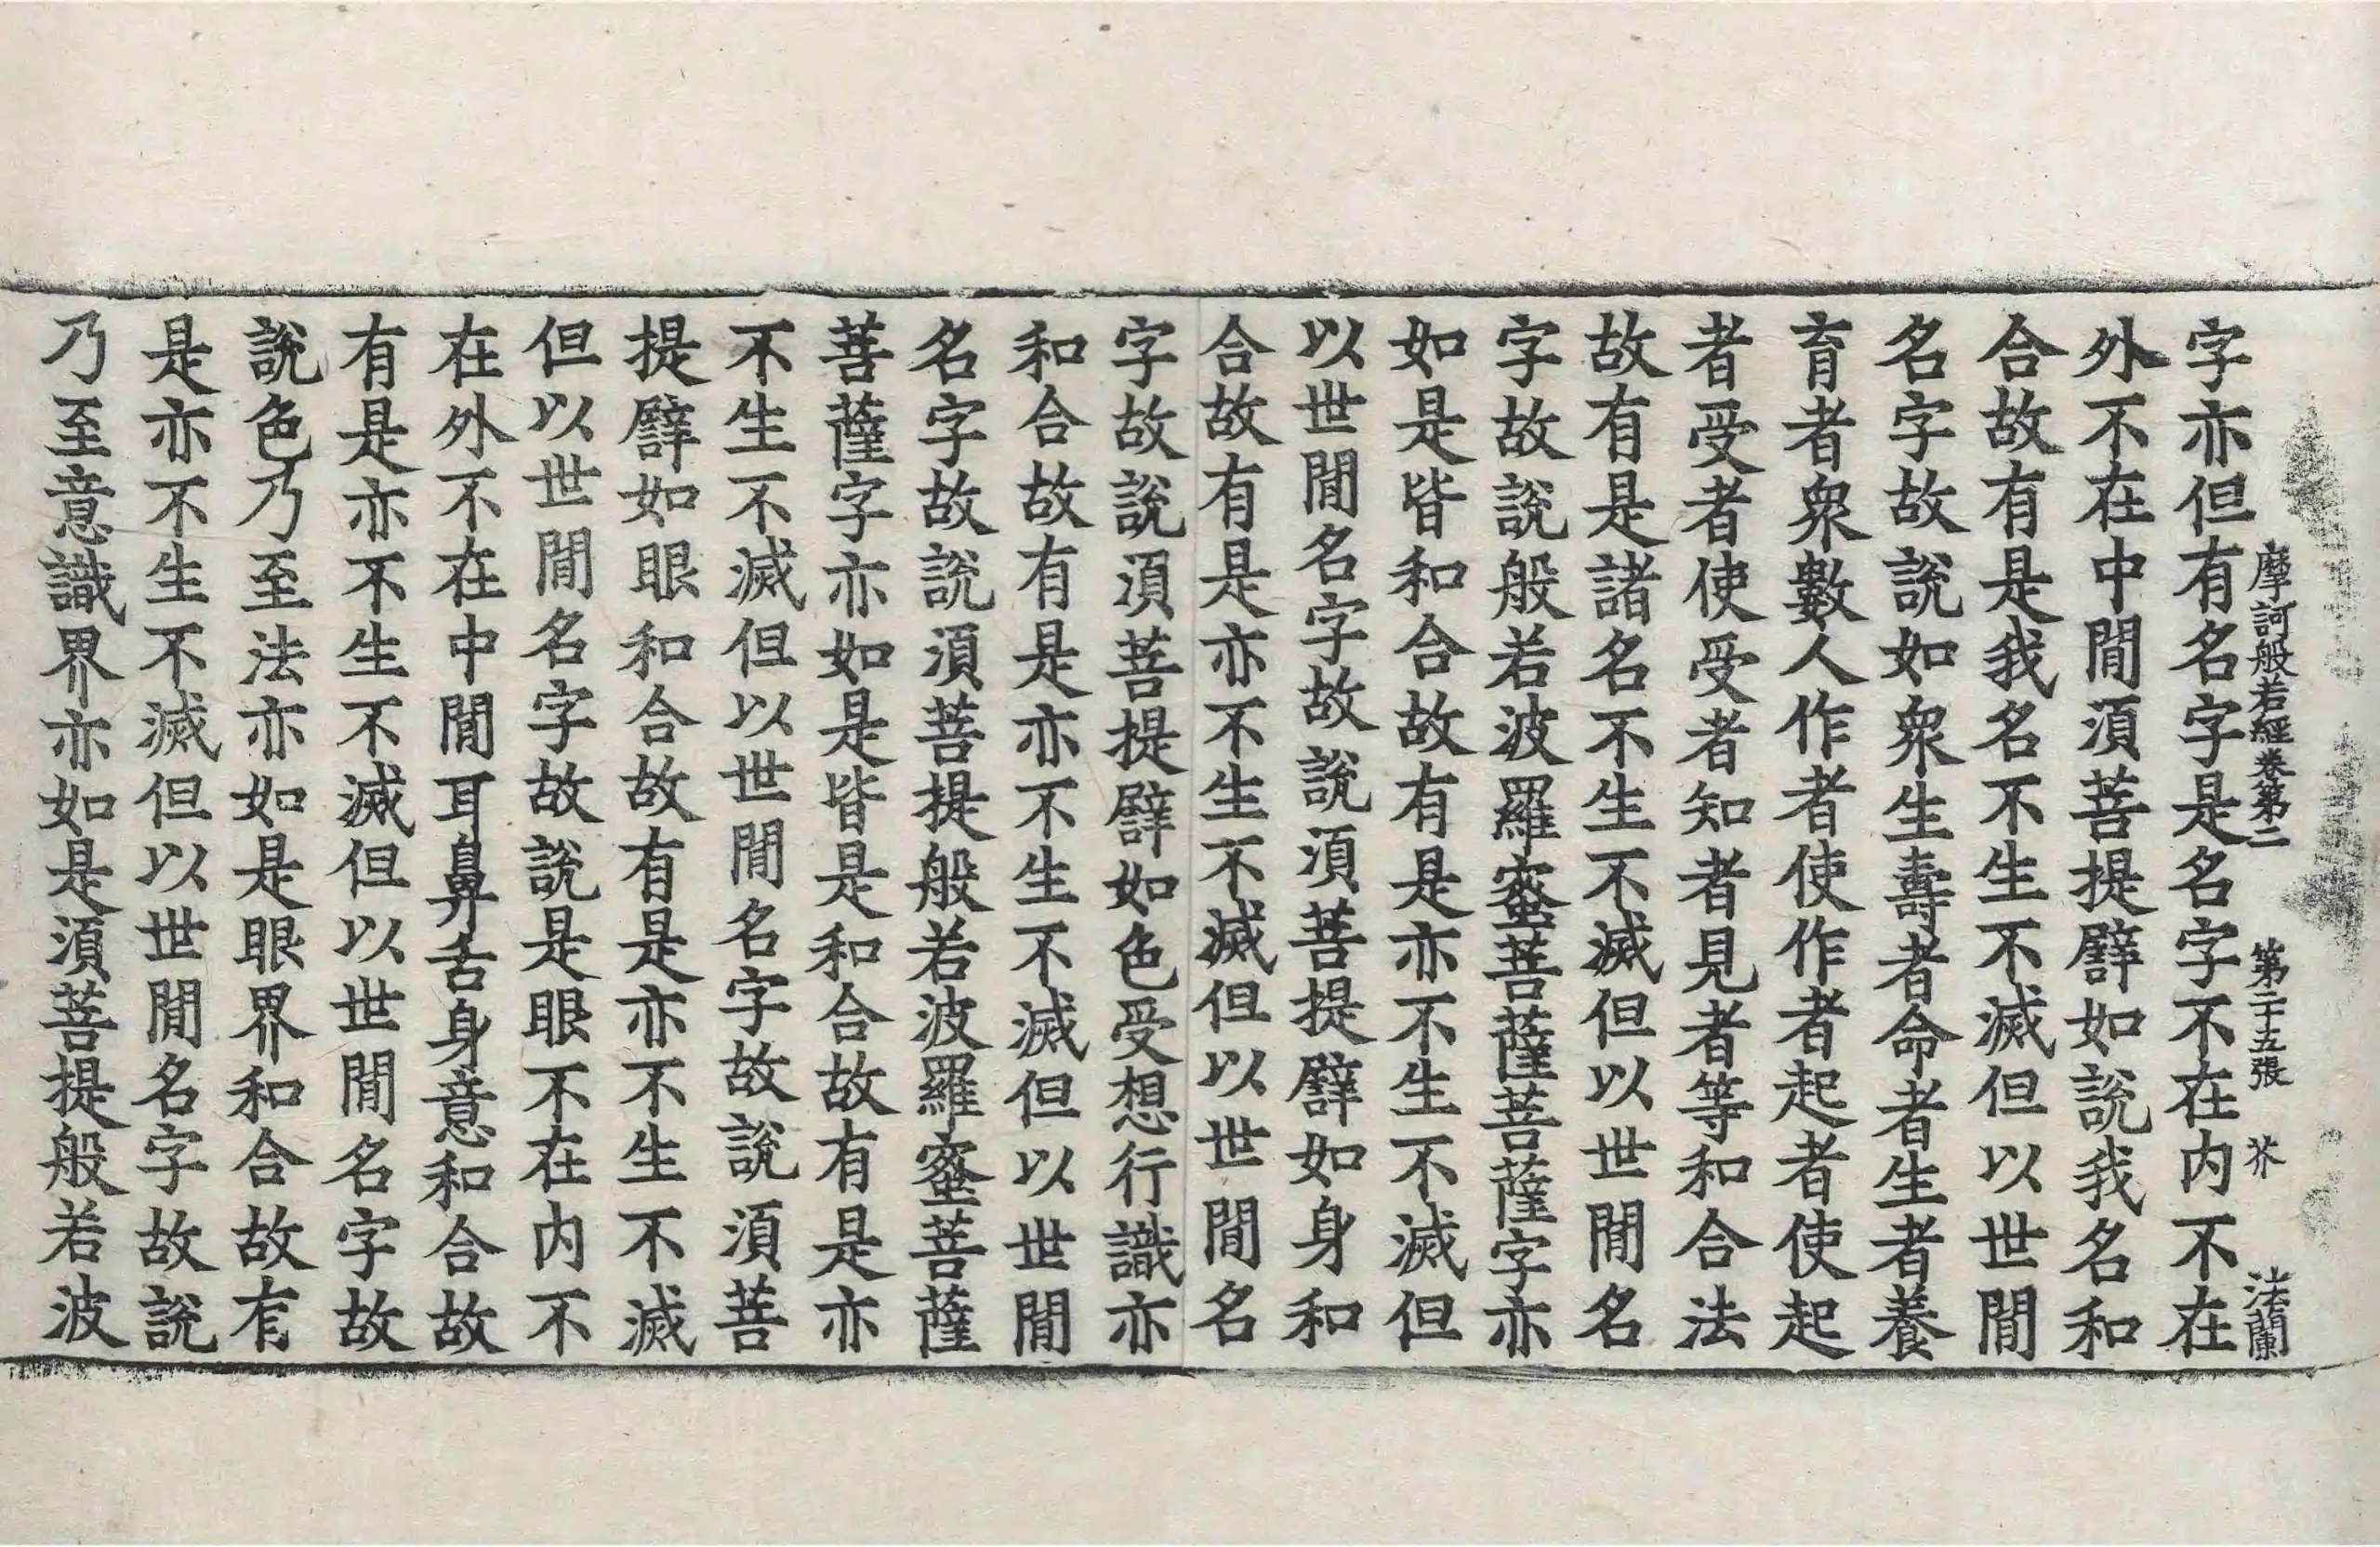 摩訶般若經卷第二 第二十五張 芥 法蘭
字亦但有名字是名字不在内不在
外不在中閒須菩提譬如說我名和
合故有是我名不生不滅但以世閒
名字故說如衆生壽者命者生者養
育者衆數人作者使作者起者使起
者受者使受者知者見者等和合法
故有是諸名不生不滅但以世閒名
字故說般若波羅蜜菩薩菩薩字亦
如是皆和合故有是亦不生不滅但
以世閒名字故說須菩提譬如身和
合故有是亦不生不滅但以世閒名
字故說須菩提譬如色受想行識亦
和合故有是亦不生不滅但以世閒
名字故說須菩提般若波羅蜜菩薩
菩薩字亦如是皆是和合故有是亦
不生不滅但以世閒名字故說須菩
提譬如眼和合故有是亦不生不滅
但以世閒名字故說是眼不在内不
在外不在中閒耳鼻舌身意和合故
有是亦不生不滅但以世閒名字故
說色乃至法亦如是眼界和合故有
是亦不生不滅但以世閒名字故說
乃至意識界亦如是須菩提般若波